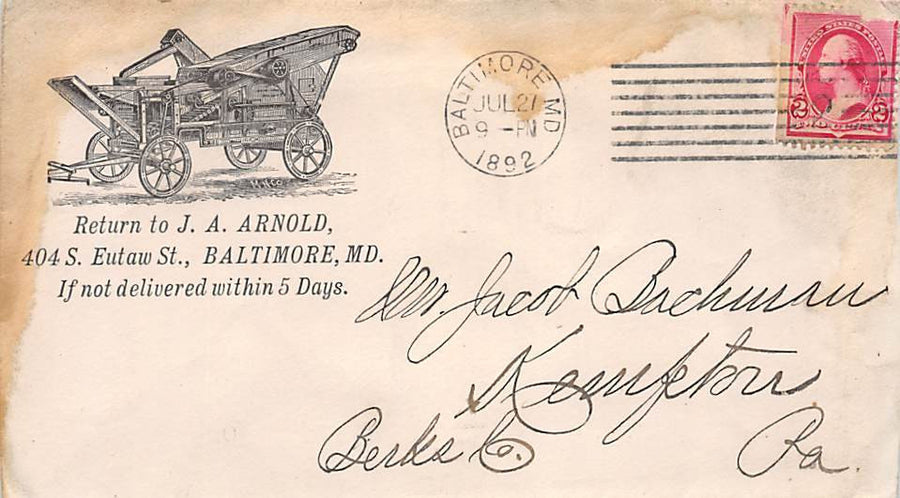 BALTIMORE MD
JUL 27
9 - PM
1892
UNITED STATES POSTAGE
2 2
TWO CENTS
M.&Co.
Return to J. A. ARNOLD,
404 S. Eutaw St., BALTIMORE, MD.
If not delivered within 5 Days.
Mr. Jacob Bachman
Kempton
Berks Co. Pa.